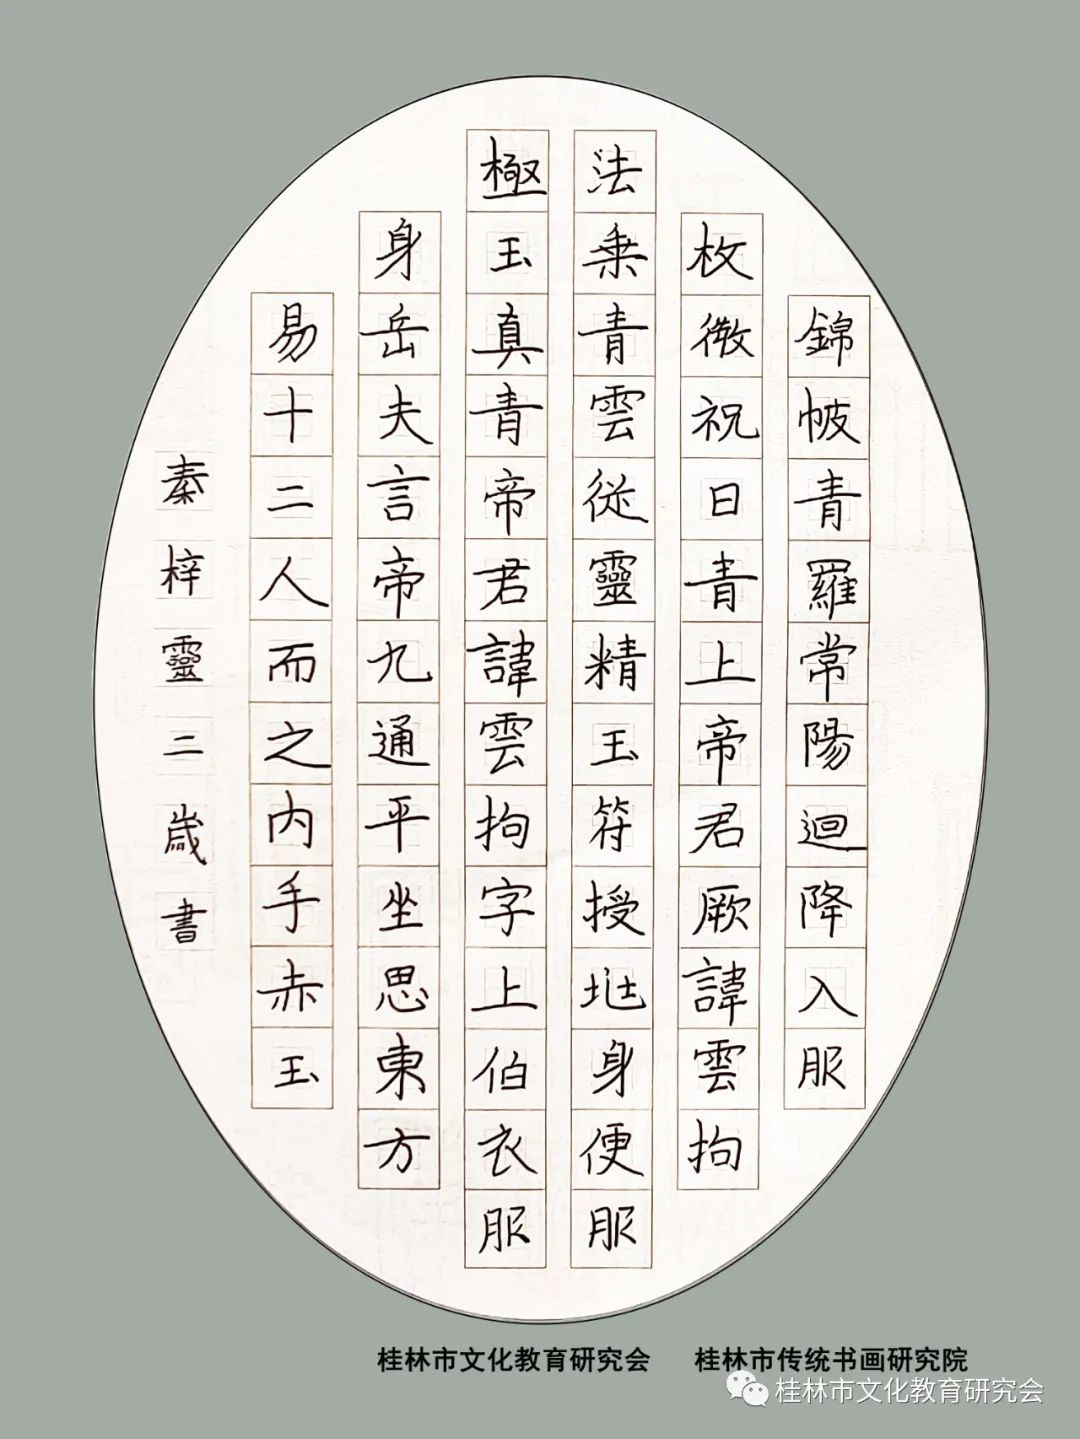 錦帔青羅常陽迴降入服
枚徵祝日青上帝君厥諱雲拘
法乗青雲從靈精玉符授地身便服
極玉真青帝君諱雲拘字上伯衣服
身岳夫言帝九通平坐思東方
易十二人而之内手赤玉
秦梓靈二歲書
桂林市文化教育研究会 桂林市传统书画研究院
桂林市文化教育研究会